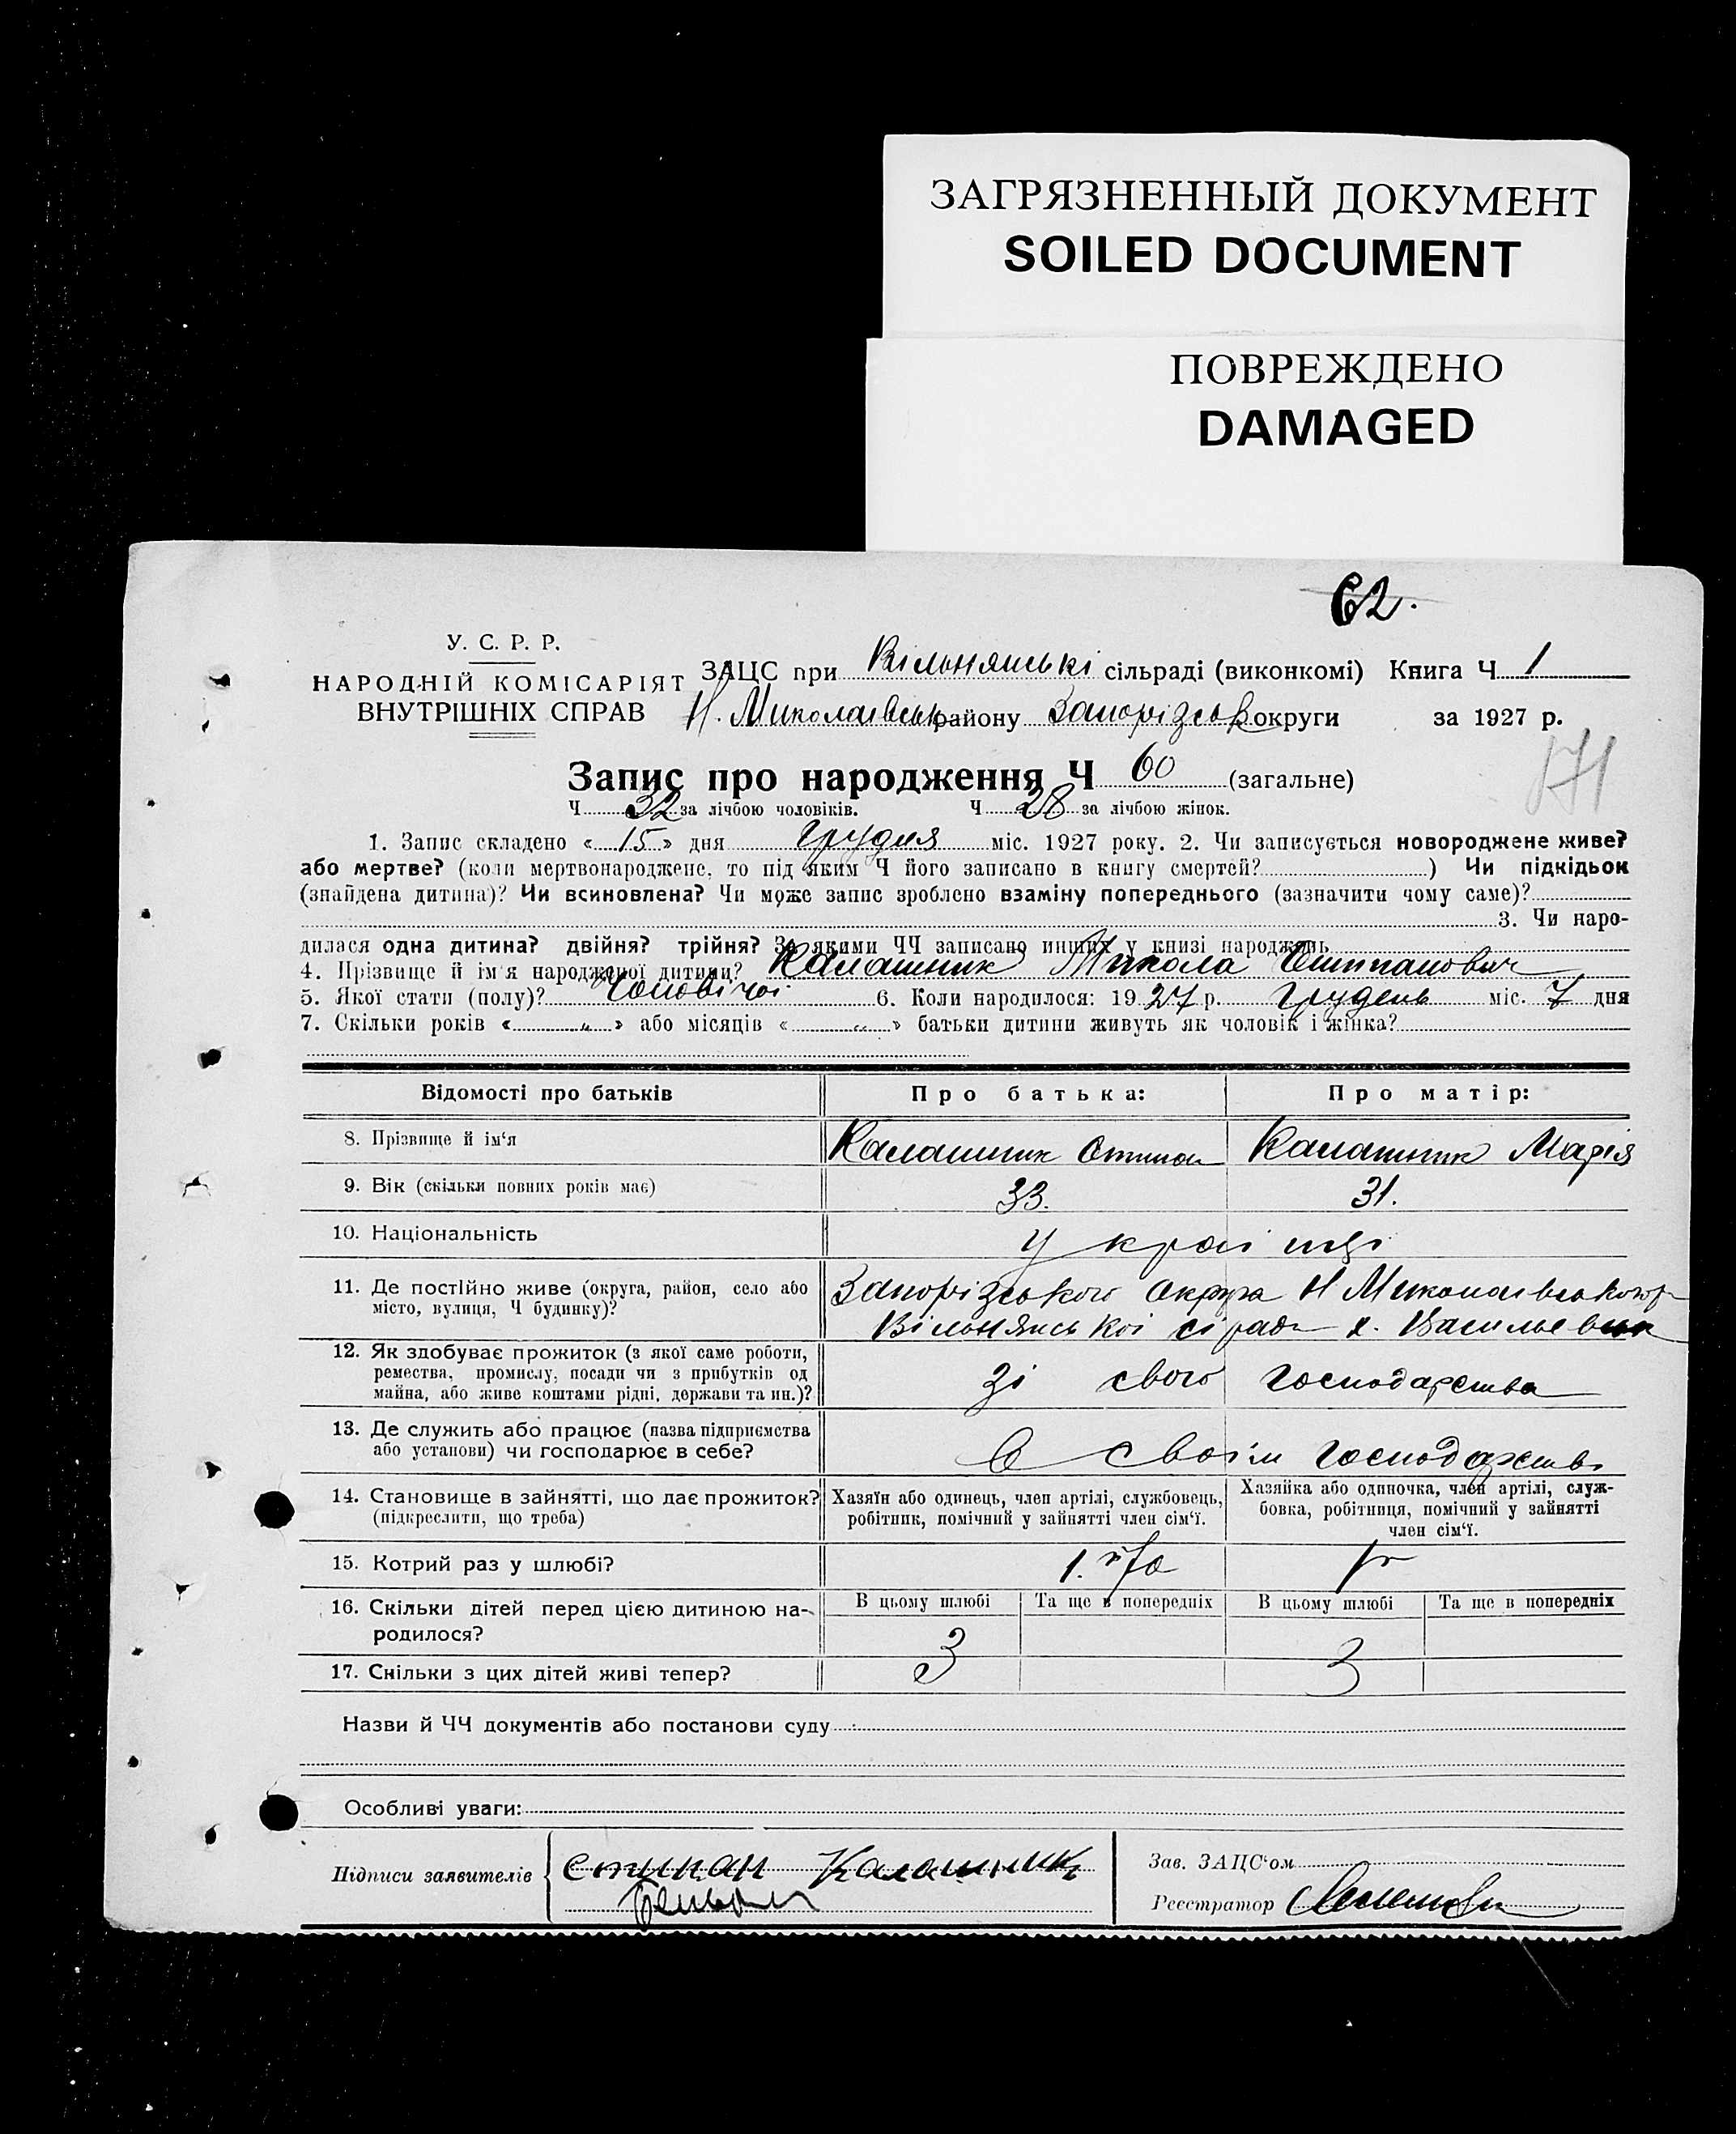 ЗАГРЯЗНЕННЫЙ ДОКУМЕНТ
SOILED DOCUMENT
ПОВРЕЖДЕНО
DAMAGED
62.
У. С. Р. Р.
НАРОДНІЙ КОМІСАРІЯТ
ВНУТРІШНІХ СПРАВ
ЗАЦС при Вільнянські сільраді (виконкомі) Книга Ч 1
Н. Миколаівськ району Запорізськ округи за 1927 р.
171
Запис про народження Ч 60 (загальне)
Ч 32 за лічбою чоловіків. Ч 28 за лічбою жінок.
1. Запис складено « 15 » дня Грудня міс. 1927 року. 2. Чи записується новороджене живе?
або мертве? (коли мертвонароджене, то під яким Ч його записано в книгу смертей? ) Чи підкідьок
(знайдена дитина)? Чи всиновлена? Чи може запис зроблено взаміну попереднього (зазначити чому саме)?
3. Чи наро-
дилася одна дитина? двійня? трійня? За якими ЧЧ записано инших у книзі народжень
4. Прізвище й ім'я народженої дитини? Калашник Микола Стипанович
5. Якої стати (полу)? Чоловічоі 6. Коли народилося: 1927 р. Грудень міс. 7 дня
7. Скільки років « „ » або місяців « „ » батьки дитини живуть як чоловік і жінка?
Відомості про батьків Про батька: Про матір:
8. Прізвище й ім'я Калашник Стипан Калашник Марія
9. Вік (скільки повних років має) 33. 31.
10. Національність Украінці
11. Де постійно живе (округа, район, село або
місто, вулиця, Ч будинку)?
Запорізського Округа Н Миколаівського р
Вільнянськоі сіради х. Васильевка
12. Як здобуває прожиток (з якої саме роботи,
ремества, промислу, посади чи з прибутків од
майна, або живе коштами рідні, держави та ин.)?
зі свого господарства
13. Де служить або працює (назва підприємства
або установи) чи господарює в себе?
в своім господарстві
14. Становище в зайнятті, що дає прожиток?
(підкреслити, що треба)
Хазяїн або одинець, член артілі, службовець,
робітник, помічний у зайнятті член сім'ї.
Хазяйка або одиночка, член артілі, служ-
бовка, робітниця, помічний у зайнятті
член сім'ї.
15. Котрий раз у шлюбі? 1.
16. Скільки дітей перед цією дитиною на-
родилося?
В цьому шлюбі Та ще в попередніх В цьому шлюбі Та ще в попередніх
3 3
17. Скільки з цих дітей живі тепер?
Назви й ЧЧ документів або постанови суду
Особливі уваги:
Підписи заявителів Стипан Калашник
Зав. ЗАЦС'ом
Реєстратор